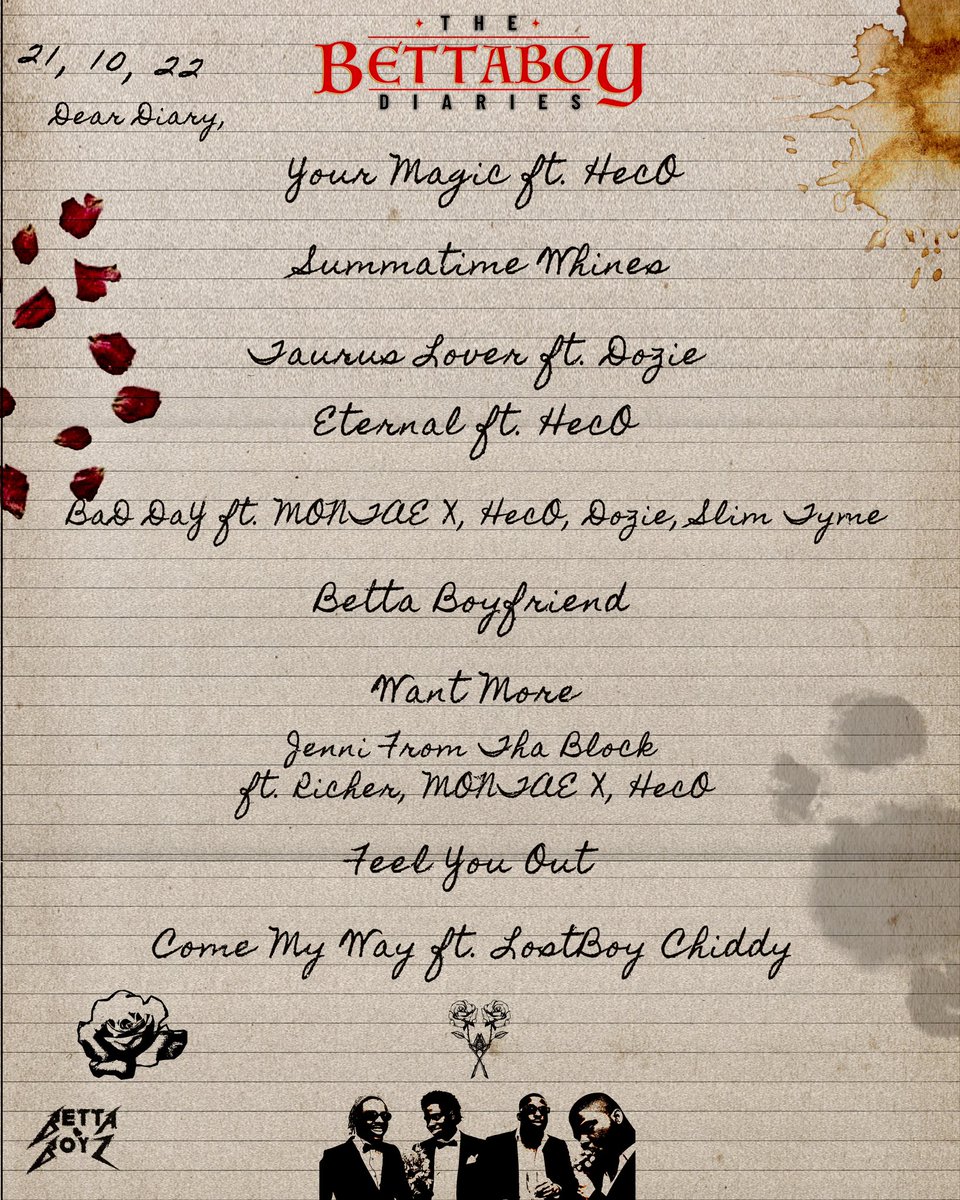 THE
BETTABOY
DIARIES
21, 10, 22
Dear Diary,
Your Magic ft. HecO
Summatime Whines
Taurus Lover ft. Dozie
Eternal ft. HecO
BaD DaY ft. MONTAE X, HecO, Dozie, Slim Tyme
Betta Boyfriend
Want More
Jenni From Tha Block
ft. Richer, MONTAE X, HecO
Feel You Out
Come My Way ft. LostBoy Chiddy
BETTA
BOYZ